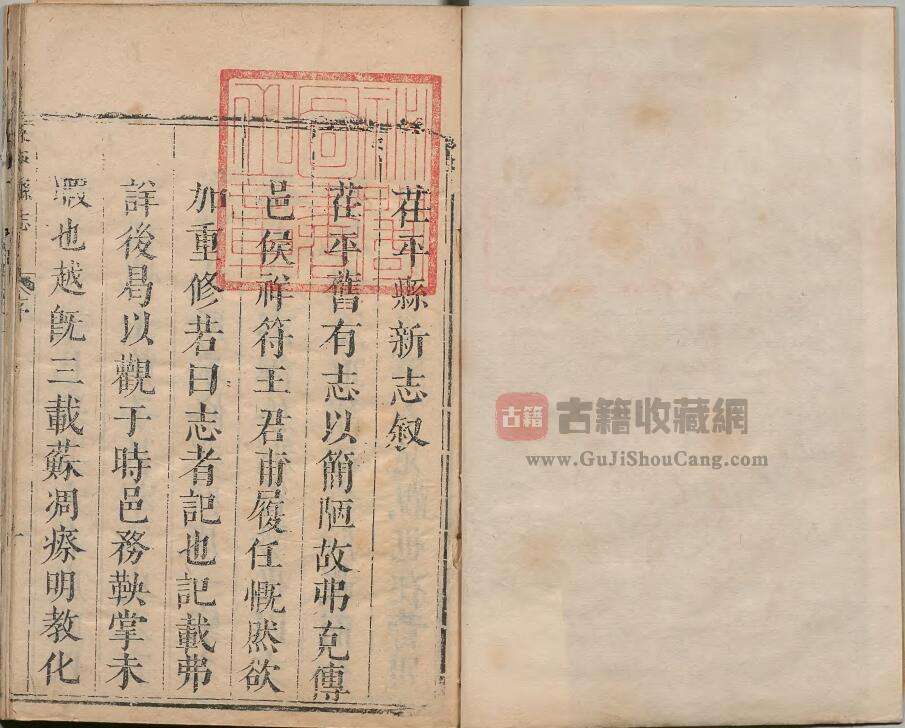 茌平縣新志叙
茌平舊有志以簡陋故弗克傳
邑侯祥符王君甫履任慨然欲
加重修若曰志者記也記載弗
詳後曷以觀于時邑務鞅掌未
暇也越旣三載蘇凋瘵明教化
縣志
古籍
古籍收藏網
www.GuJiShouCang.com